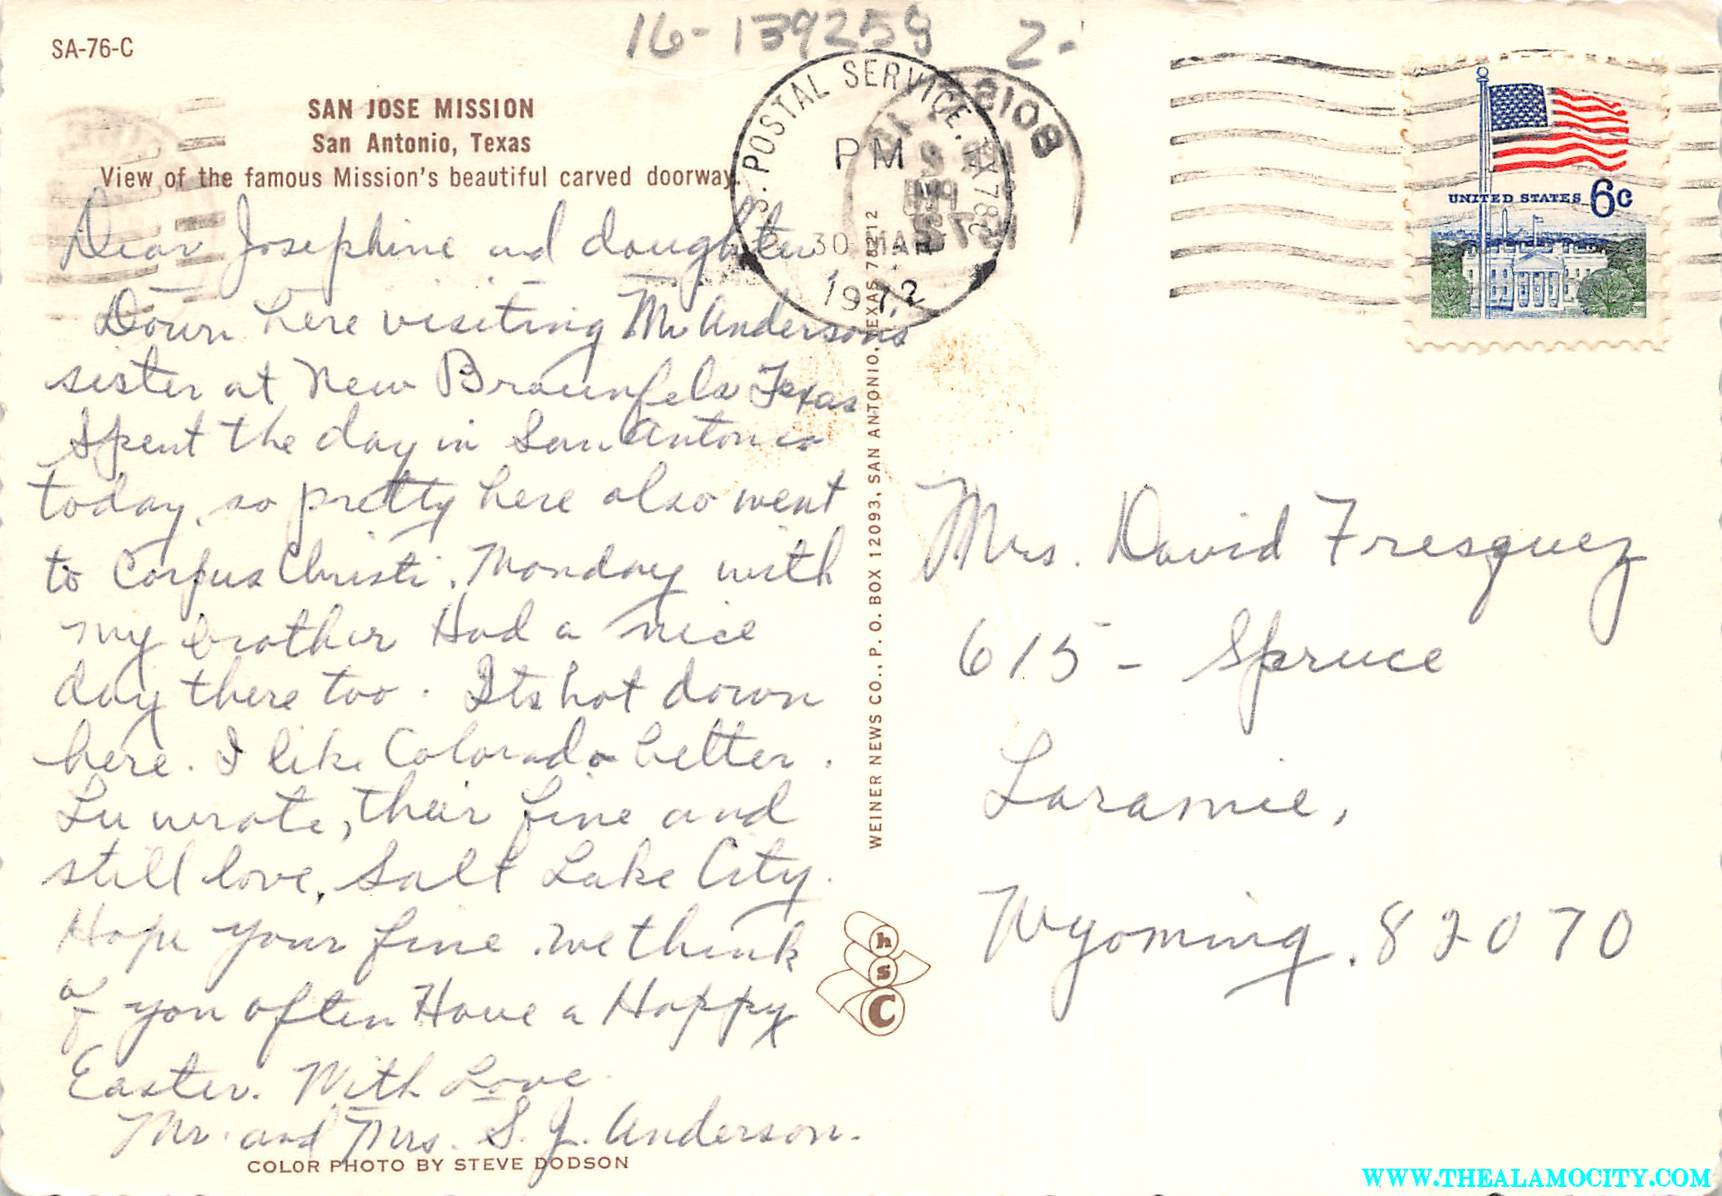 16-139258 2-
SA-76-C
SAN JOSE MISSION
San Antonio, Texas
View of the famous Mission's beautiful carved doorway.
Dear Josephine and daughter
Down here visiting Mr Andersons
sister at New Braunfels Texas
Spent the day in San Antonio
today, so pretty here also went
to Corpus Christi. Monday with
my brother Had a nice
day there too. Its hot down
here. I like Colorado better.
Lu wrote, their fine and
still love, Salt Lake City.
Hope your fine. we think
of you often Have a Happy
Easter. With Love
Mr. and Mrs. S. J. Anderson.
COLOR PHOTO BY STEVE DODSON
WEINER NEWS CO., P. O. BOX 12093, SAN ANTONIO, TEXAS 78212
hsc
U.S. POSTAL SERVICE, TX 782
PM
30 MAR
1972
UNITED STATES 6c
Mrs. David Fresquez
615 - Spruce
Laramie,
Wyoming. 82070
WWW.THEALAMOCITY.COM